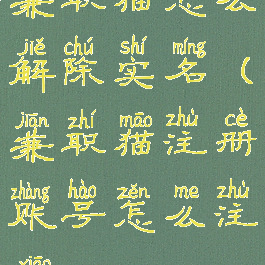 兼职猫怎么
jiě chú shí míng
解除实名（
jiān zhí māo zhù cè
兼职猫注册
zhàng hào zěn me zhù
账号怎么注
xiāo